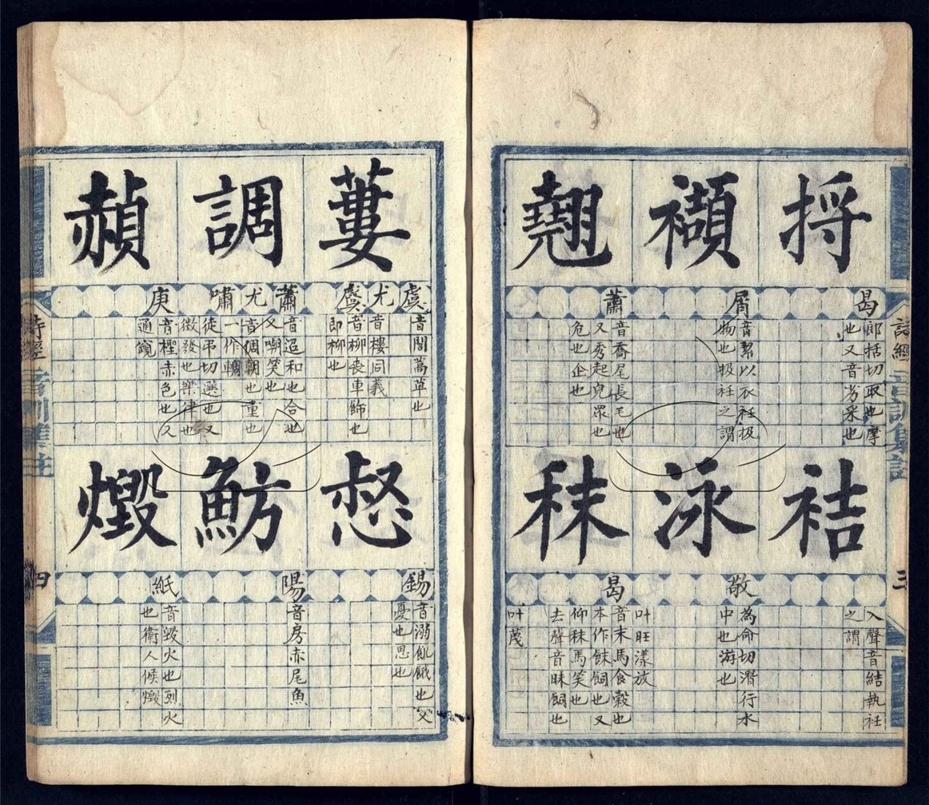 詩經
三
捋
曷
郎括切取也摩
也又音劣采也
袺
入聲音結執衽
之謂
襭
屑
音絜以衣衽扱
物也扱衽之謂
泳
敬
為命切潛行水
中也游也
叶旺漾放
翹
蕭
音喬尾長毛也
又秀起皃眾也
危也企也
秣
曷
音末馬食穀也
本作餗飼也又
仰秣馬笑也
去聲音昧飼也
叶茂
蔞
虞 尤 虞
音閭蒿草也
音樓同義
音柳喪車飾也
即柳也
惄
錫
音溺飢餓也又
憂也思也
調
蕭 尤 嘯
音迢和也合也
又啁笑也
音侜朝也重也
一作輖
徒弔切選也又
徵發也樂律也
魴
陽
音房赤尾魚
赬
庚
音檉赤色也又
通竀
燬
紙
音毀火也烈火
也衛人侯燬
詩經
音訓集註
四